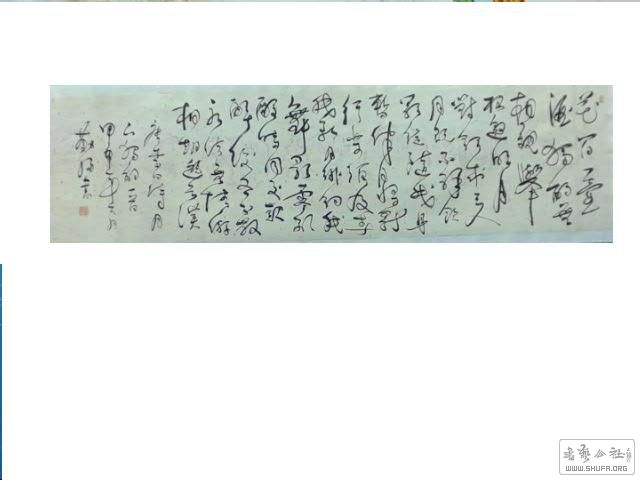 花間一壺
酒獨酌無
相親舉
杯邀明月
對影成三人
月既不解飲
影徒隨我身
暫伴月將影
行樂須及春
我歌月徘徊我
舞影零亂
醒時同交歡
醉後各分散
永結無情遊
相期邈雲漢
唐李白詩月
下獨酌一首
甲申年六月
書
書藝公社
WWW.SHUFA.ORG